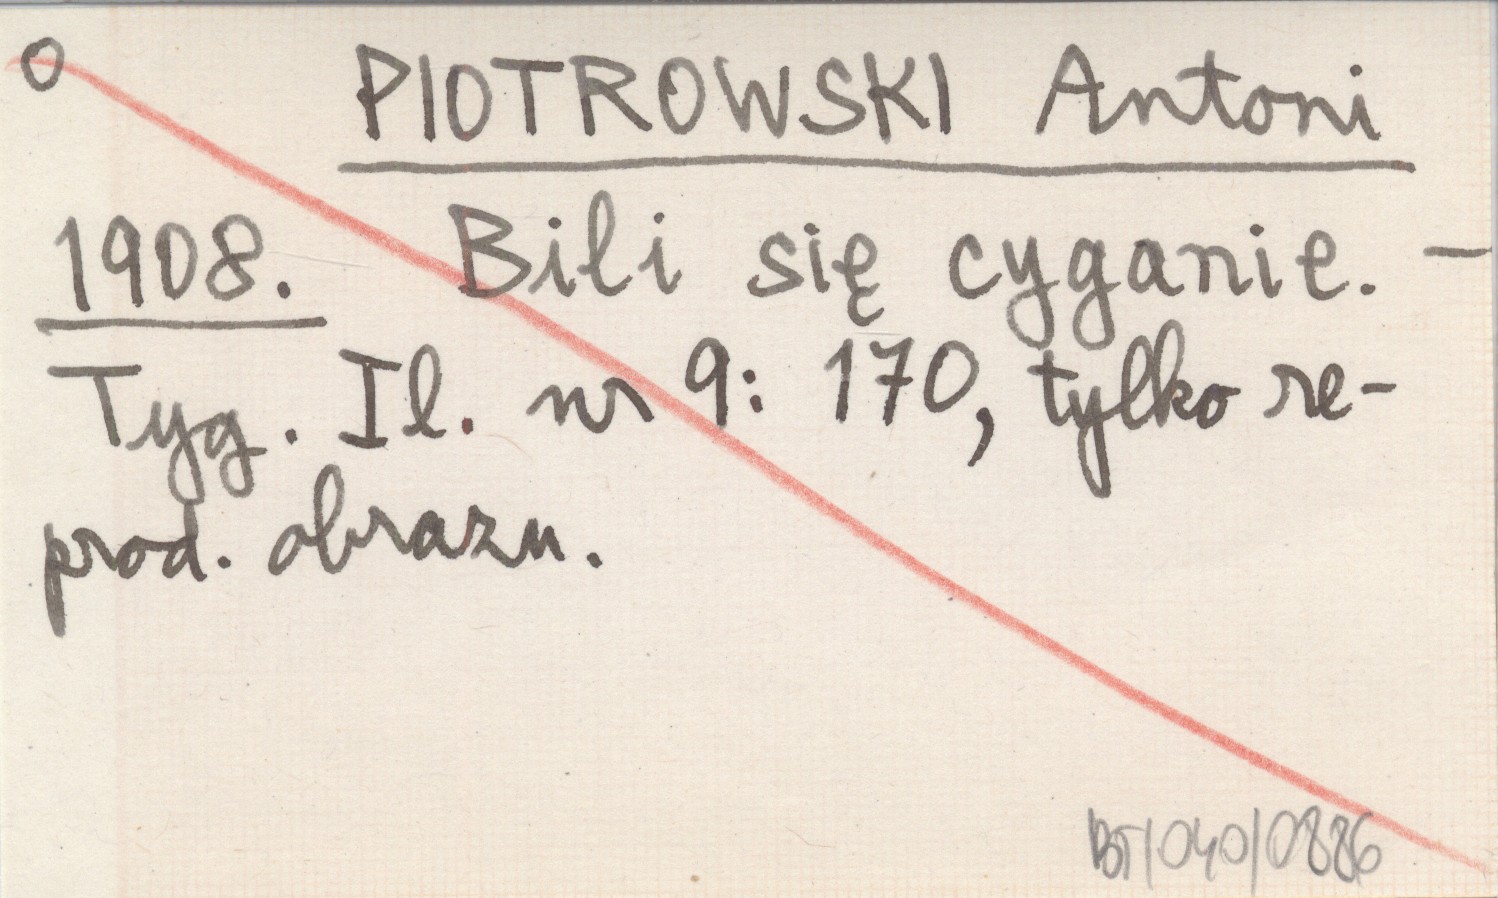 O PIOTROWSKI Antoni
1908. Bili się cyganie. –
Tyg. Il. nr 9: 170, tylko re-
prod. obrazu.
BT/040/0886